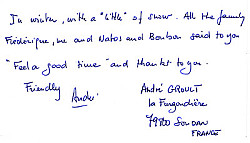 In winter, with a "little" of snow. All the family
Frédérique, me and Natos and Bonbon said to you
"Feel a good time" and thanks to you.
Friendly
André
André GROULT
la Fugandière
79100 SOUDAN
FRANCE